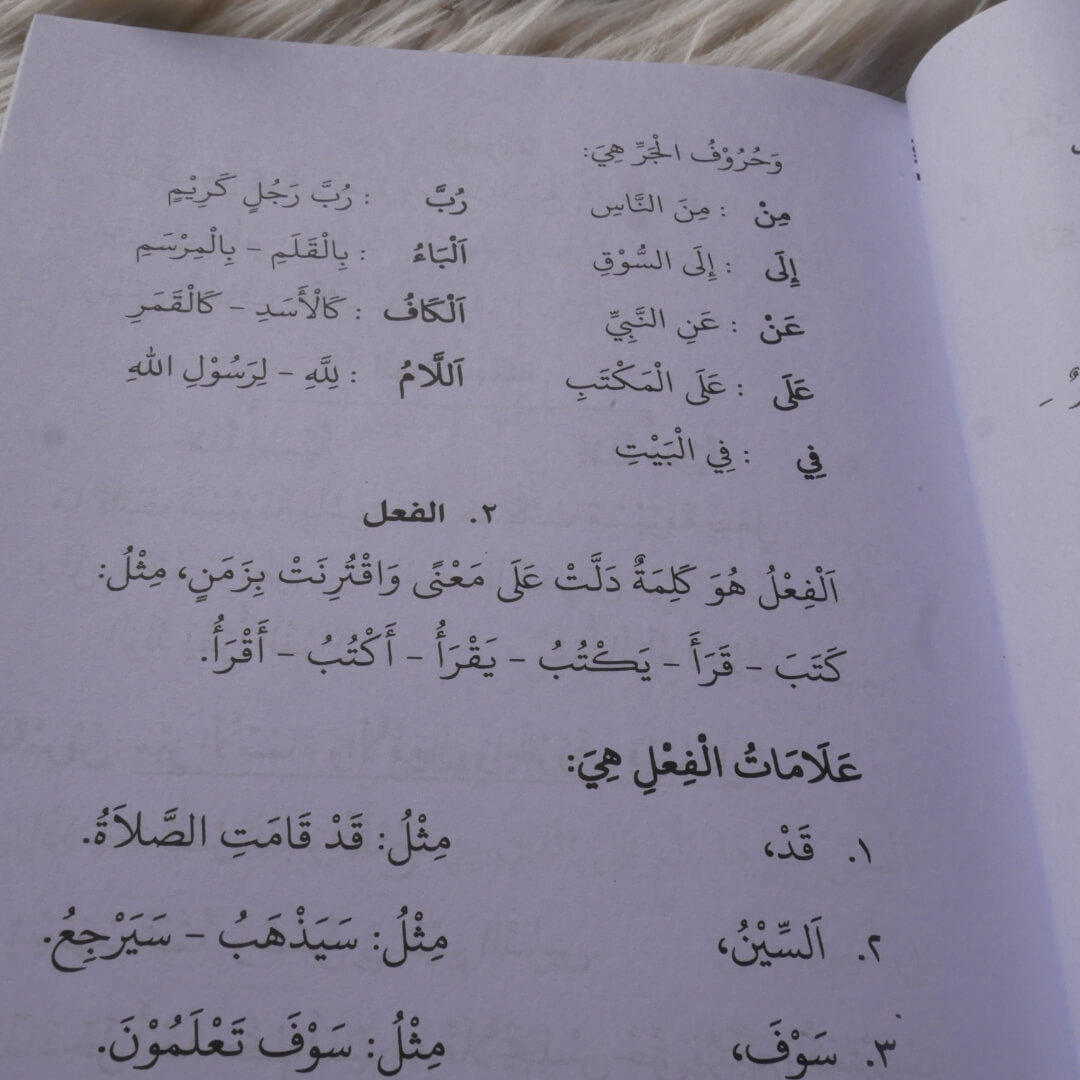 وَحُرُوْفُ الْجَرِّ هِيَ:
مِنْ : مِنَ النَّاسِ رُبَّ : رُبَّ رَجُلٍ كَرِيْمٍ
إِلَى : إِلَى السُّوْقِ اَلْبَاءُ : بِالْقَلَمِ - بِالْمِرْسَمِ
عَنْ : عَنِ النَّبِيِّ اَلْكَافُ : كَالْأَسَدِ - كَالْقَمَرِ
عَلَى : عَلَى الْمَكْتَبِ اَللَّامُ : لِلَّهِ - لِرَسُوْلِ اللهِ
فِي : فِي الْبَيْتِ
٢. الفعل
اَلْفِعْلُ هُوَ كَلِمَةٌ دَلَّتْ عَلَى مَعْنًى وَاقْتُرِنَتْ بِزَمَنٍ، مِثْلُ:
كَتَبَ - قَرَأَ - يَكْتُبُ - يَقْرَأُ - أَكْتُبُ - أَقْرَأُ.
عَلَامَاتُ الْفِعْلِ هِيَ:
١. قَدْ، مِثْلُ: قَدْ قَامَتِ الصَّلاَةُ.
٢. اَلسِّيْنُ، مِثْلُ: سَيَذْهَبُ - سَيَرْجِعُ.
٣. سَوْفَ، مِثْلُ: سَوْفَ تَعْلَمُوْنَ.